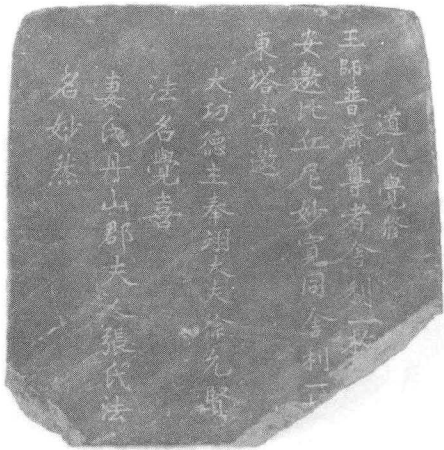 道人覺
王師普濟尊者舍利一枚
安邀比丘尼妙寬同舍利一
東塔安邀
大功德主奉翊大夫徐允賢
法名覺喜
妻氏丹山郡夫人張氏法
名妙然